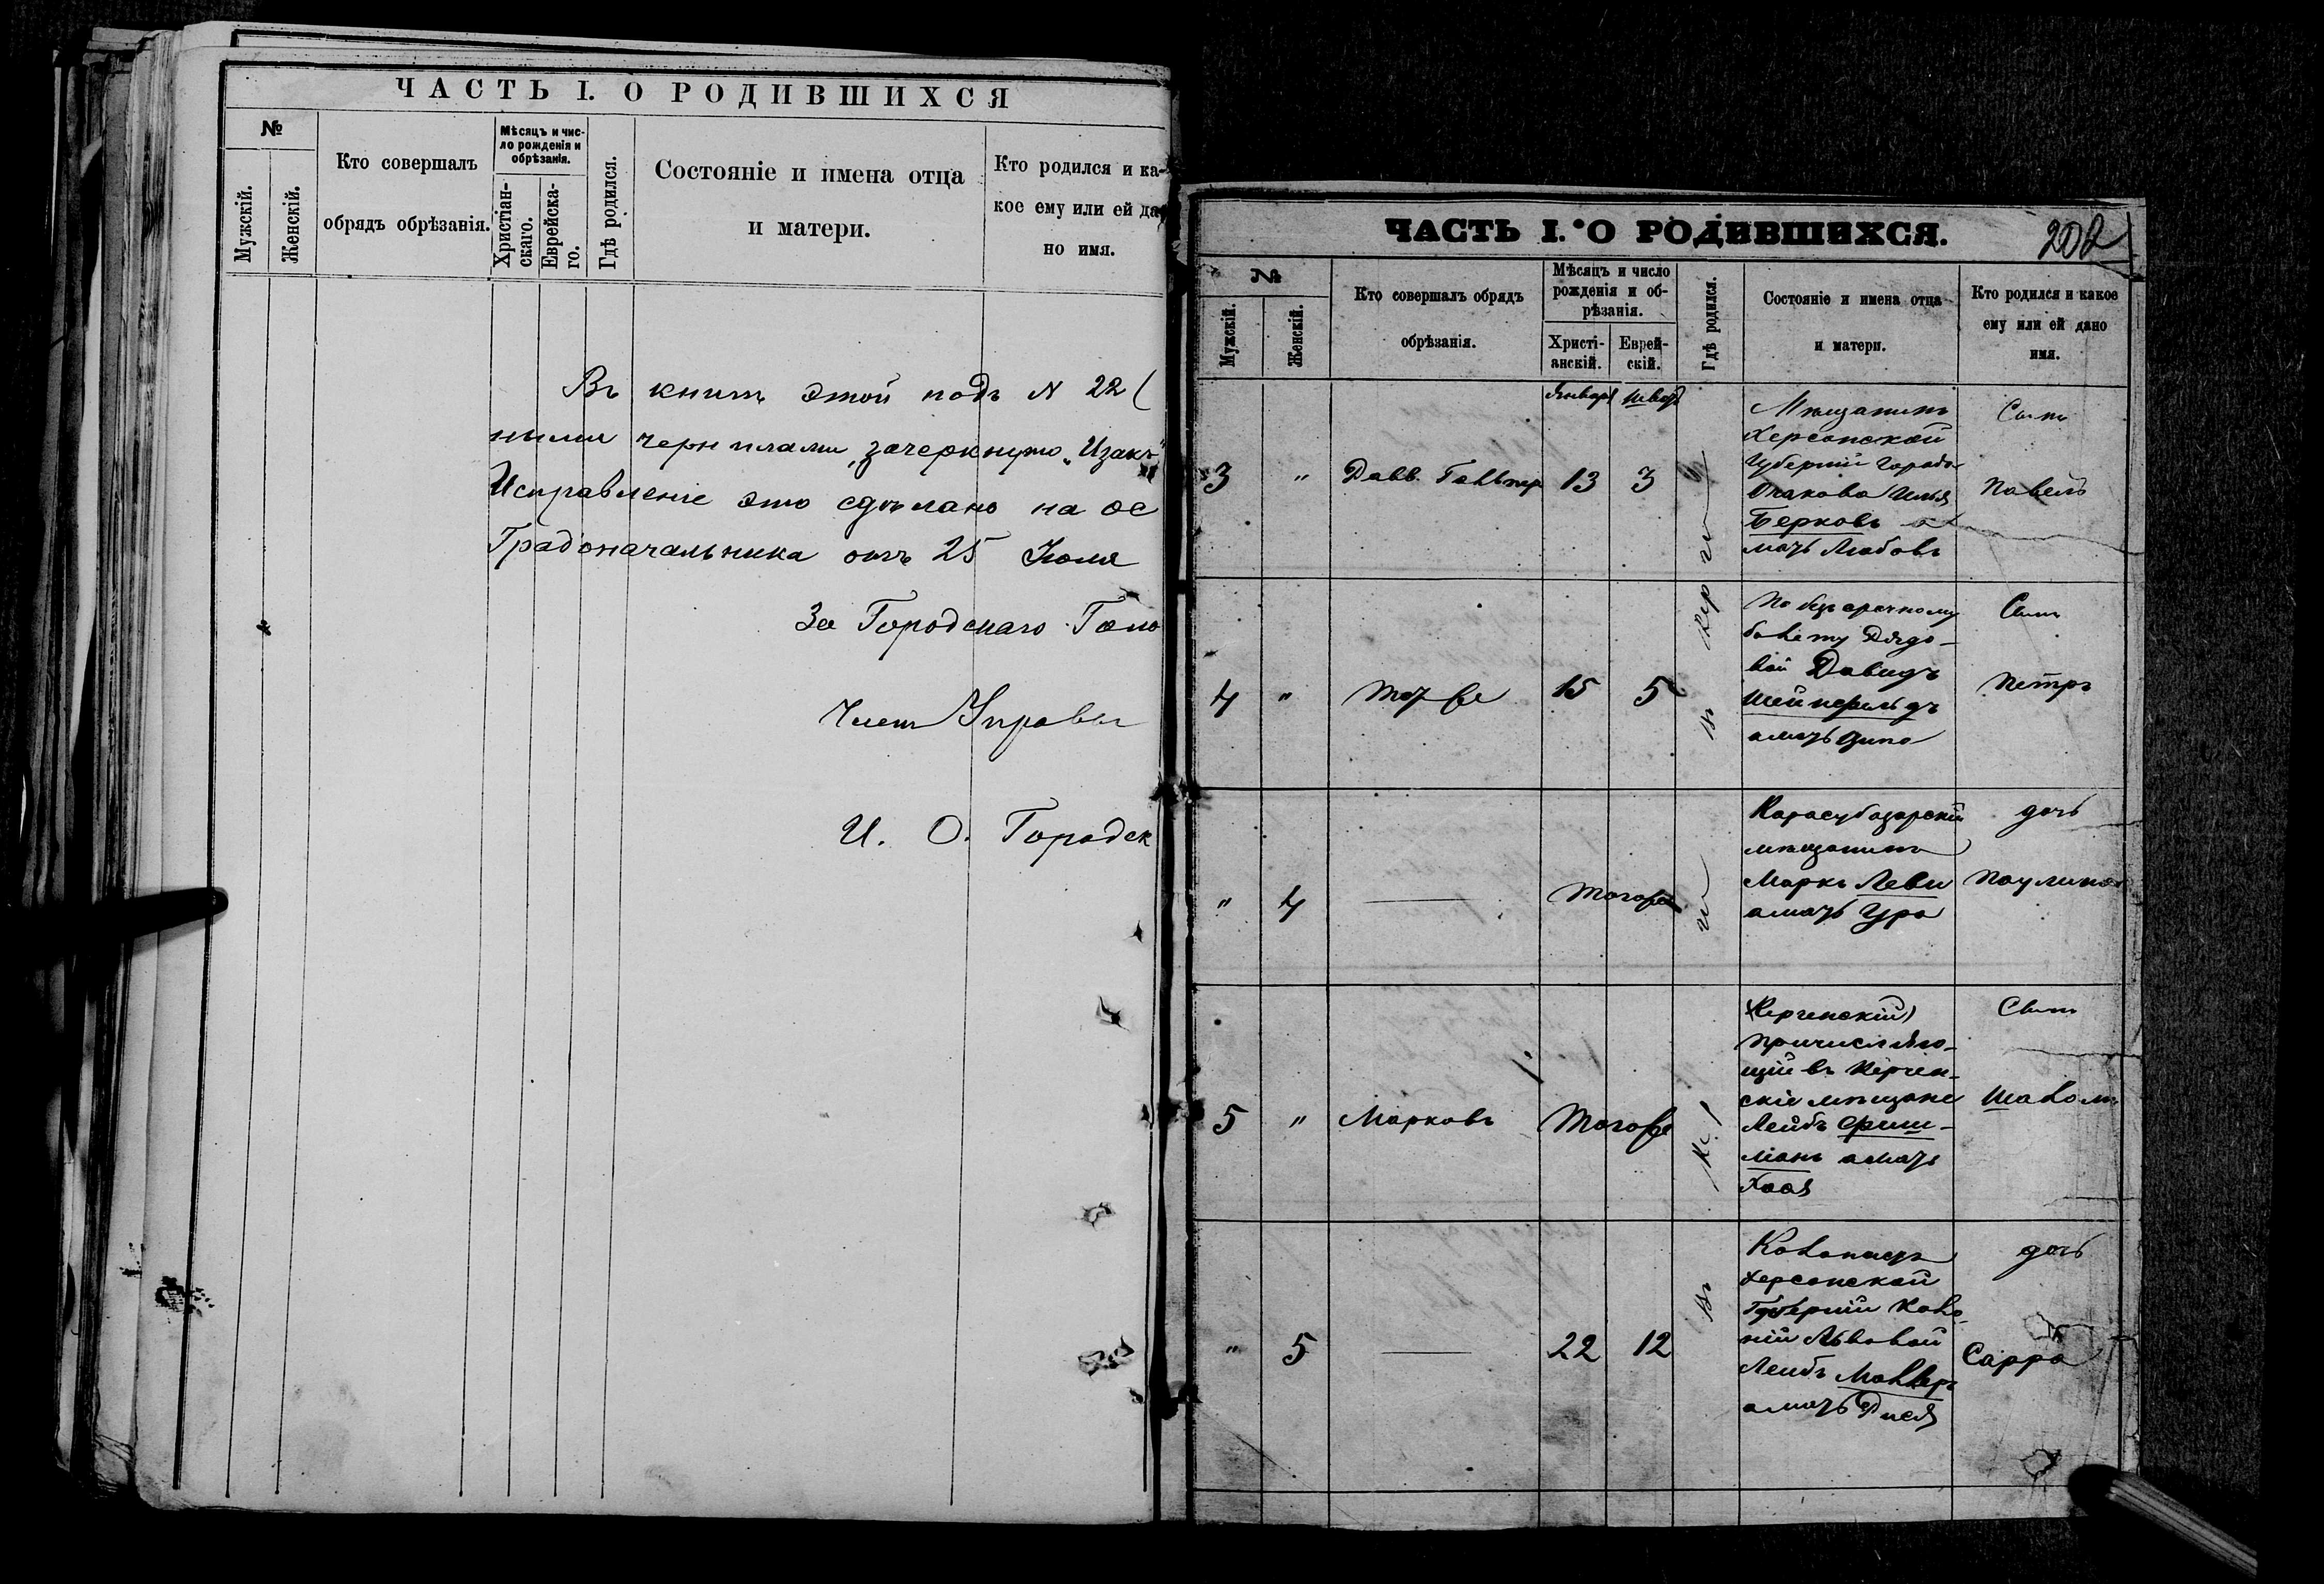 ЧАСТЬ I. О РОДИВШИХСЯ
№
Мужскій.
Женскій.
Кто совершалъ
обрядъ обрѣзанія.
Мѣсяцъ и чис-
ло рожденія и
обрѣзанія.
Христіан-
скаго.
Еврейска-
го.
Гдѣ родился.
Состояніе и имена отца
и матери.
Кто родился и ка-
кое ему или ей да-
но имя.
Въ книгѣ этой подъ N 22 (
ными чернилами, зачеркнуто „Изакъ"
Исправленіе это сдѣлано на ос
Градоначальника отъ 25 Іюля
За Городскаго Голо
Членъ Управы
И. О. Городск
ЧАСТЬ I. О РОДИВШИХСЯ.
202
№
Мужскій.
Женскій.
Кто совершалъ обрядъ
обрѣзанія.
Мѣсяцъ и число
рожденія и об-
рѣзанія.
Христі-
анскій.
Еврей-
скій.
Гдѣ родился.
Состояніе и имена отца
и матери.
Кто родился и какое
ему или ей дано
имя.
Января Шватъ
3 " Давв. 13 3
Мѣщанинъ
Херсонской
Губерніи города
Очакова Илья
Берковъ а
мать Любовь
Сынъ
Павелъ
4 " Тотже 15 5
По безсрочному
билету Рядо-
вой Давидъ
Шейнфельдъ
а мать
Сынъ
Петръ
" 4 — Тогоже
Карасубазарскій
мѣщанинъ
Маркъ Леви
а мать Сура
дочь
Паулина
5 " Марковъ Тогоже
Керченскій
причисляю-
щій въ Керчен-
скіе мѣщане
Лейбъ Фиш-
манъ а мать
Хая
Сынъ
Шаломъ
" 5 — 22 12
Колонистъ
Херсонской
Губерніи Коло-
ніи Львовой
Лейбъ
а мать
дочь
Сарра
Въ Керчи
Въ К. I